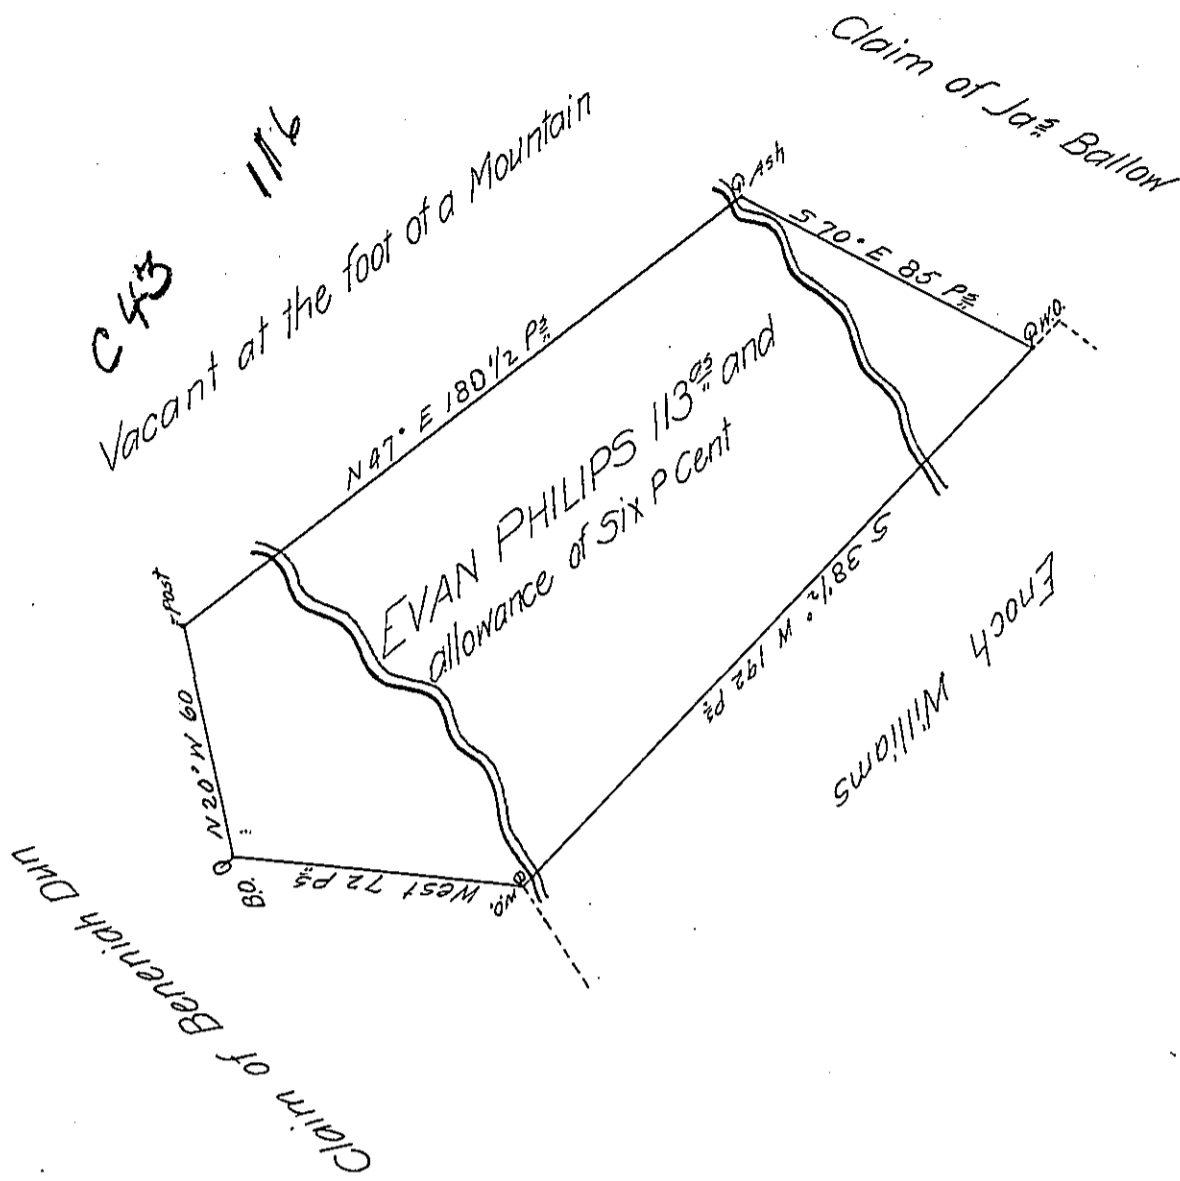 C 43 116
Claim of Jas Ballow
Vacant at the foot of a Mountain
Ash
S 70° E 85 Ps
W.O.
N 47° E 180 1/2 Ps
EVAN PHILIPS 113as and
allowance of Six P Cent
S 38 1/2° W 192 Ps
Enoch Williams
Post
N 20° W 60
B.O.
West 72 Ps
W.O.
Claim of Beneniah Dun